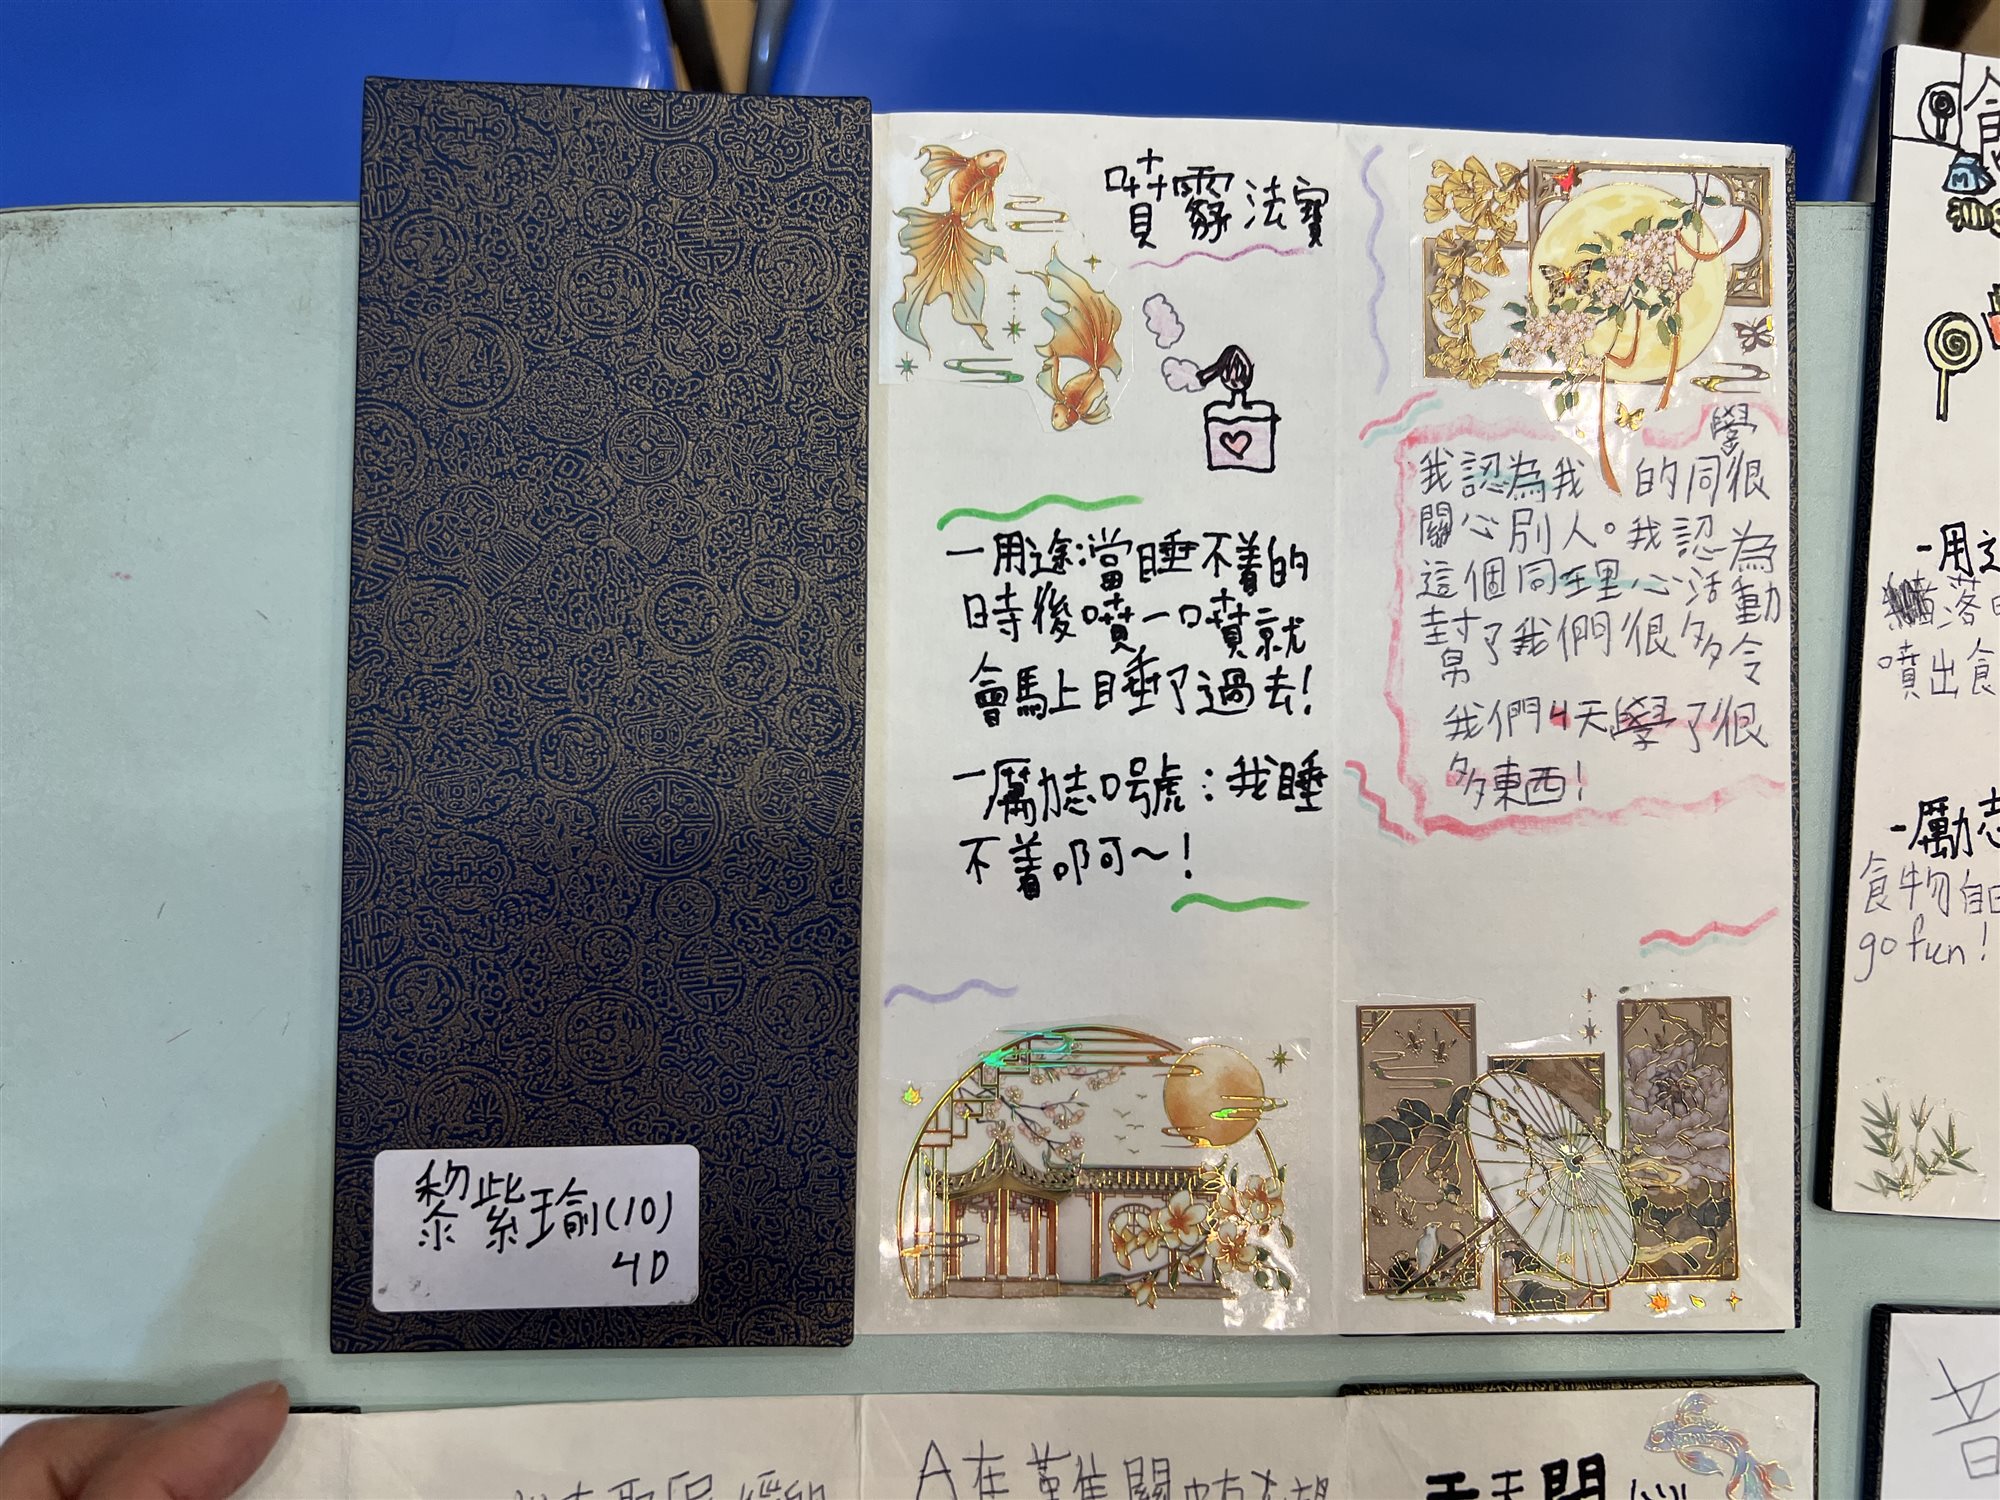 噴霧法寶
一用途:當睡不着的
時後噴一噴就
會馬上睡了過去!
一厲力志口号虎:我睡
不着啊～!
學
我認為我的同很
關心別人。我認為
這個同理心活動
幫了我們很多令
我們4天學了很
多東西!
黎紫瑜(10)
4D
-用途
落
噴出食
-厲力志
食物自
go fun!
M
A在難關